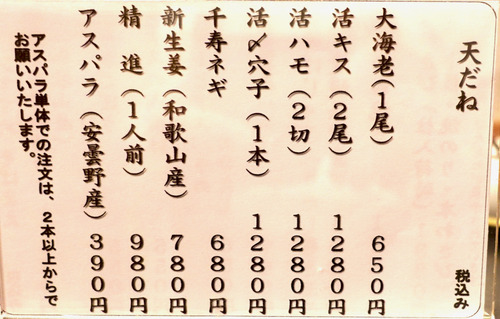 天だね 税込み
大海老(1尾) 650円
活キス(2尾) 1280円
活ハモ(2切) 1280円
活〆穴子(1本) 1280円
千寿ネギ 680円
新生姜(和歌山産) 780円
精進(1人前) 980円
アスパラ(安曇野産) 390円
アスパラ単体での注文は、2本以上からで
お願いいたします。